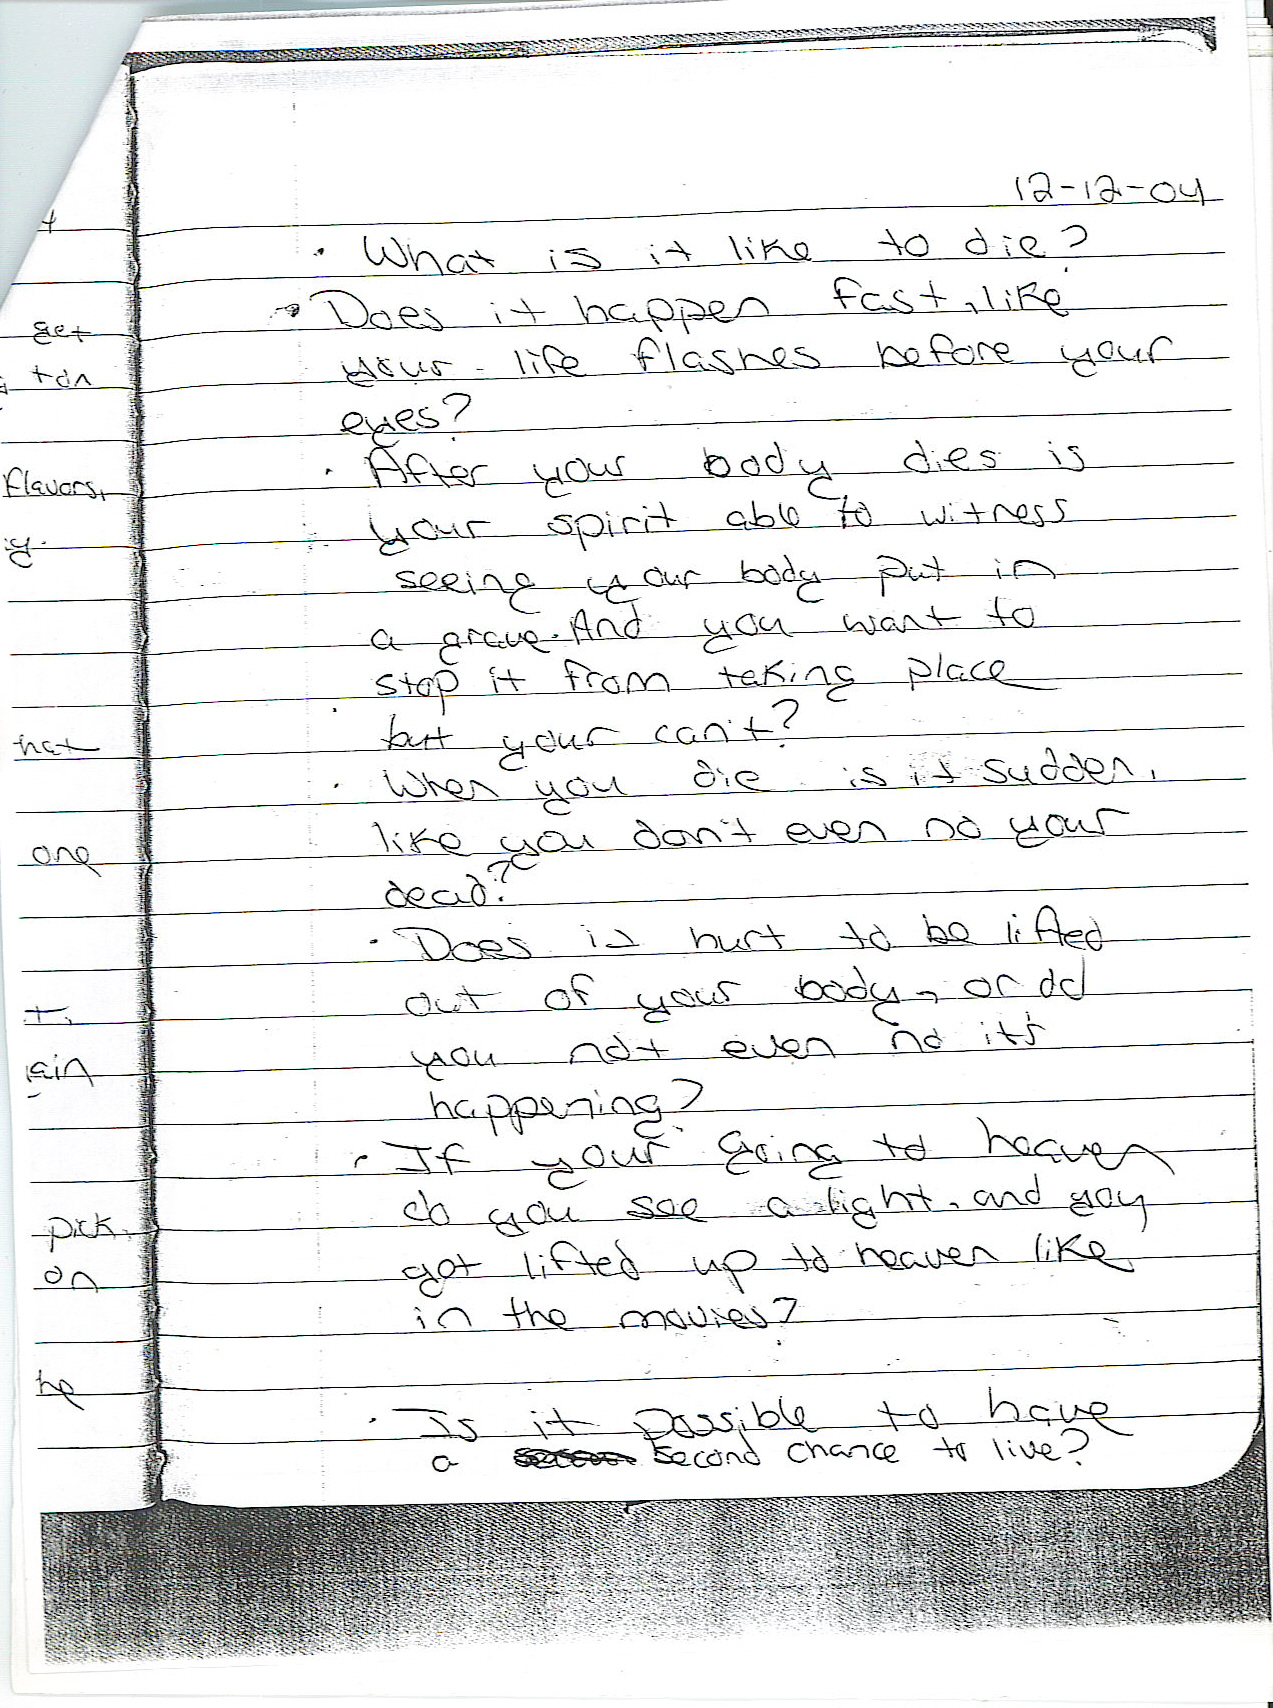 12-12-04
• What is it like to die?
• Does it happen fast, like
your life flashes before your
eyes?
• After your body dies is
your spirit able to witness
seeing your body put in
a grave. And you want to
stop it from taking place
but your can't?
• When you die is it sudden,
like you don't even no your
dead?
• Does it hurt to be lifted
out of your body, or do
you not even no it's
happening?
• If your going to heaven
do you see a light, and you
get lifted up to heaven like
in the movies?
• Is it possible to have
a second chance to live?
get
flavors,
hat
one
pick
on